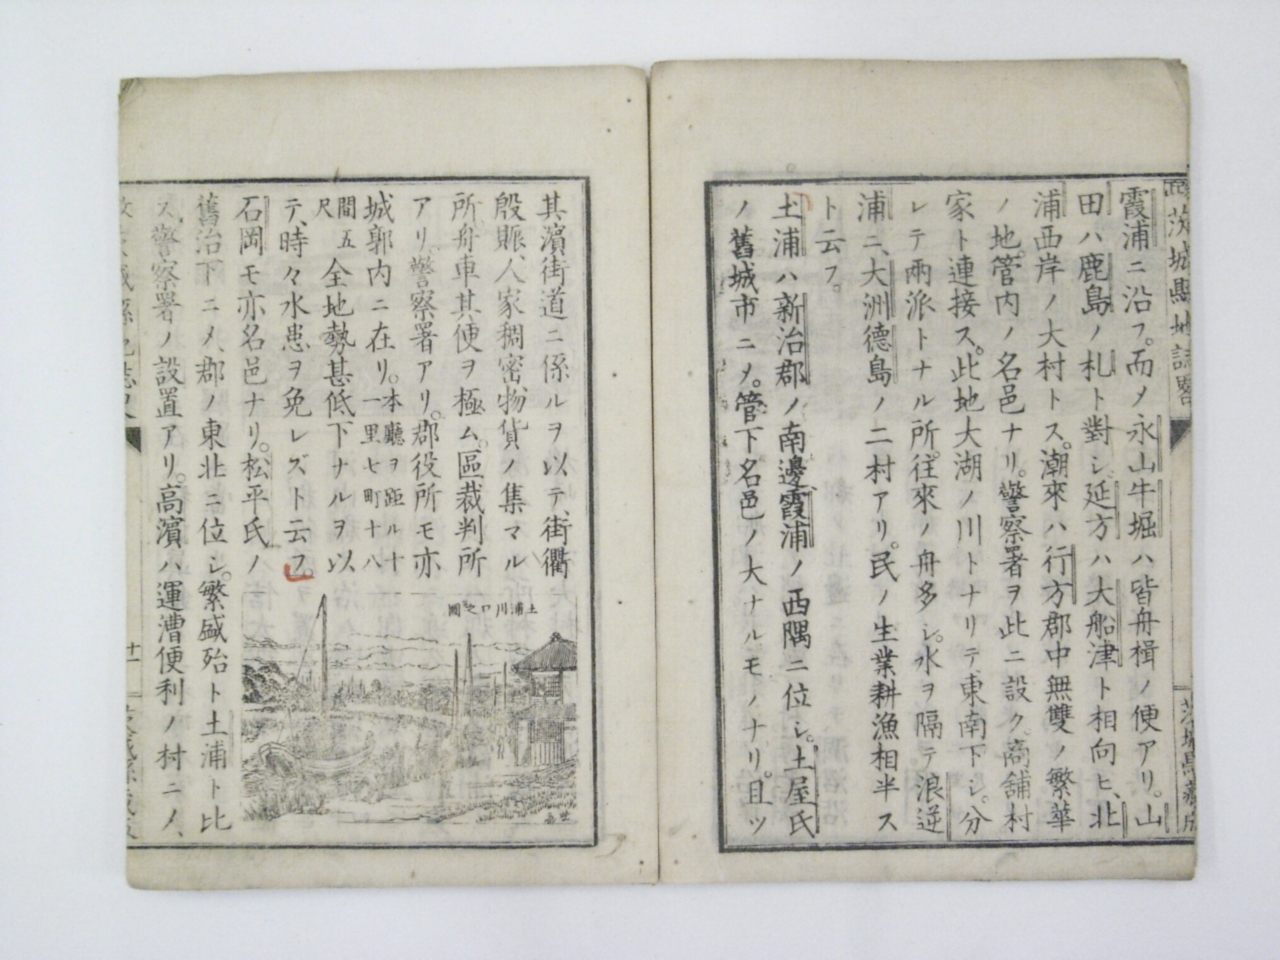 茨城縣地誌畧
茨城縣藏版
霞浦ニ沿フ。而メ永山牛堀ハ皆舟楫ノ便アリ。山
田ハ鹿島ノ札ト對シ。延方ハ大船津ト相向ヒ、北
浦西岸ノ大村トス。潮來ハ行方郡中無雙ノ繁華
ノ地。管内ノ名邑ナリ。警察署ヲ此ニ設ク。商舗村
家ト連接ス。此地大湖ノ川トナリテ東南下シ。分
レテ兩派トナル所。往來ノ舟多シ。水ヲ隔テ浪逆
浦ニ、大洲德島ノ二村アリ。民ノ生業耕漁相半ス
ト云フ。
土浦ハ新治郡ノ南邊霞浦ノ西隅ニ位シ。土屋氏
ノ舊城市ニメ。管下名邑ノ大ナルモノナリ。且ツ
其濱街道ニ係ルヲ以テ、街衢
殷賑、人家稠密物貨ノ集マル
所。舟車其便ヲ極ム。區裁判所
アリ。警察署アリ。郡役所モ亦
城郭内ニ在リ。本廳ヲ距ル十一里七町十八
間五尺全地勢甚低下ナルヲ以
テ、時々水患ヲ免レズト云フ。
石岡モ亦名邑ナリ。松平氏ノ
舊治下ニメ、郡ノ東北ニ位シ。繁盛殆ト土浦ト比
ス、警察署ノ設置アリ。高濱ハ運漕便利ノ村ニメ、
土浦川口之圖
十一